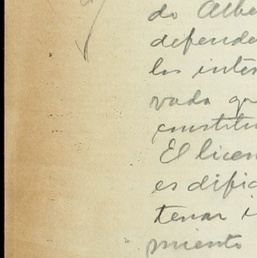 do Albe
defende
los inter
vada que
constitu
El licen
es dific
tenar i
miento